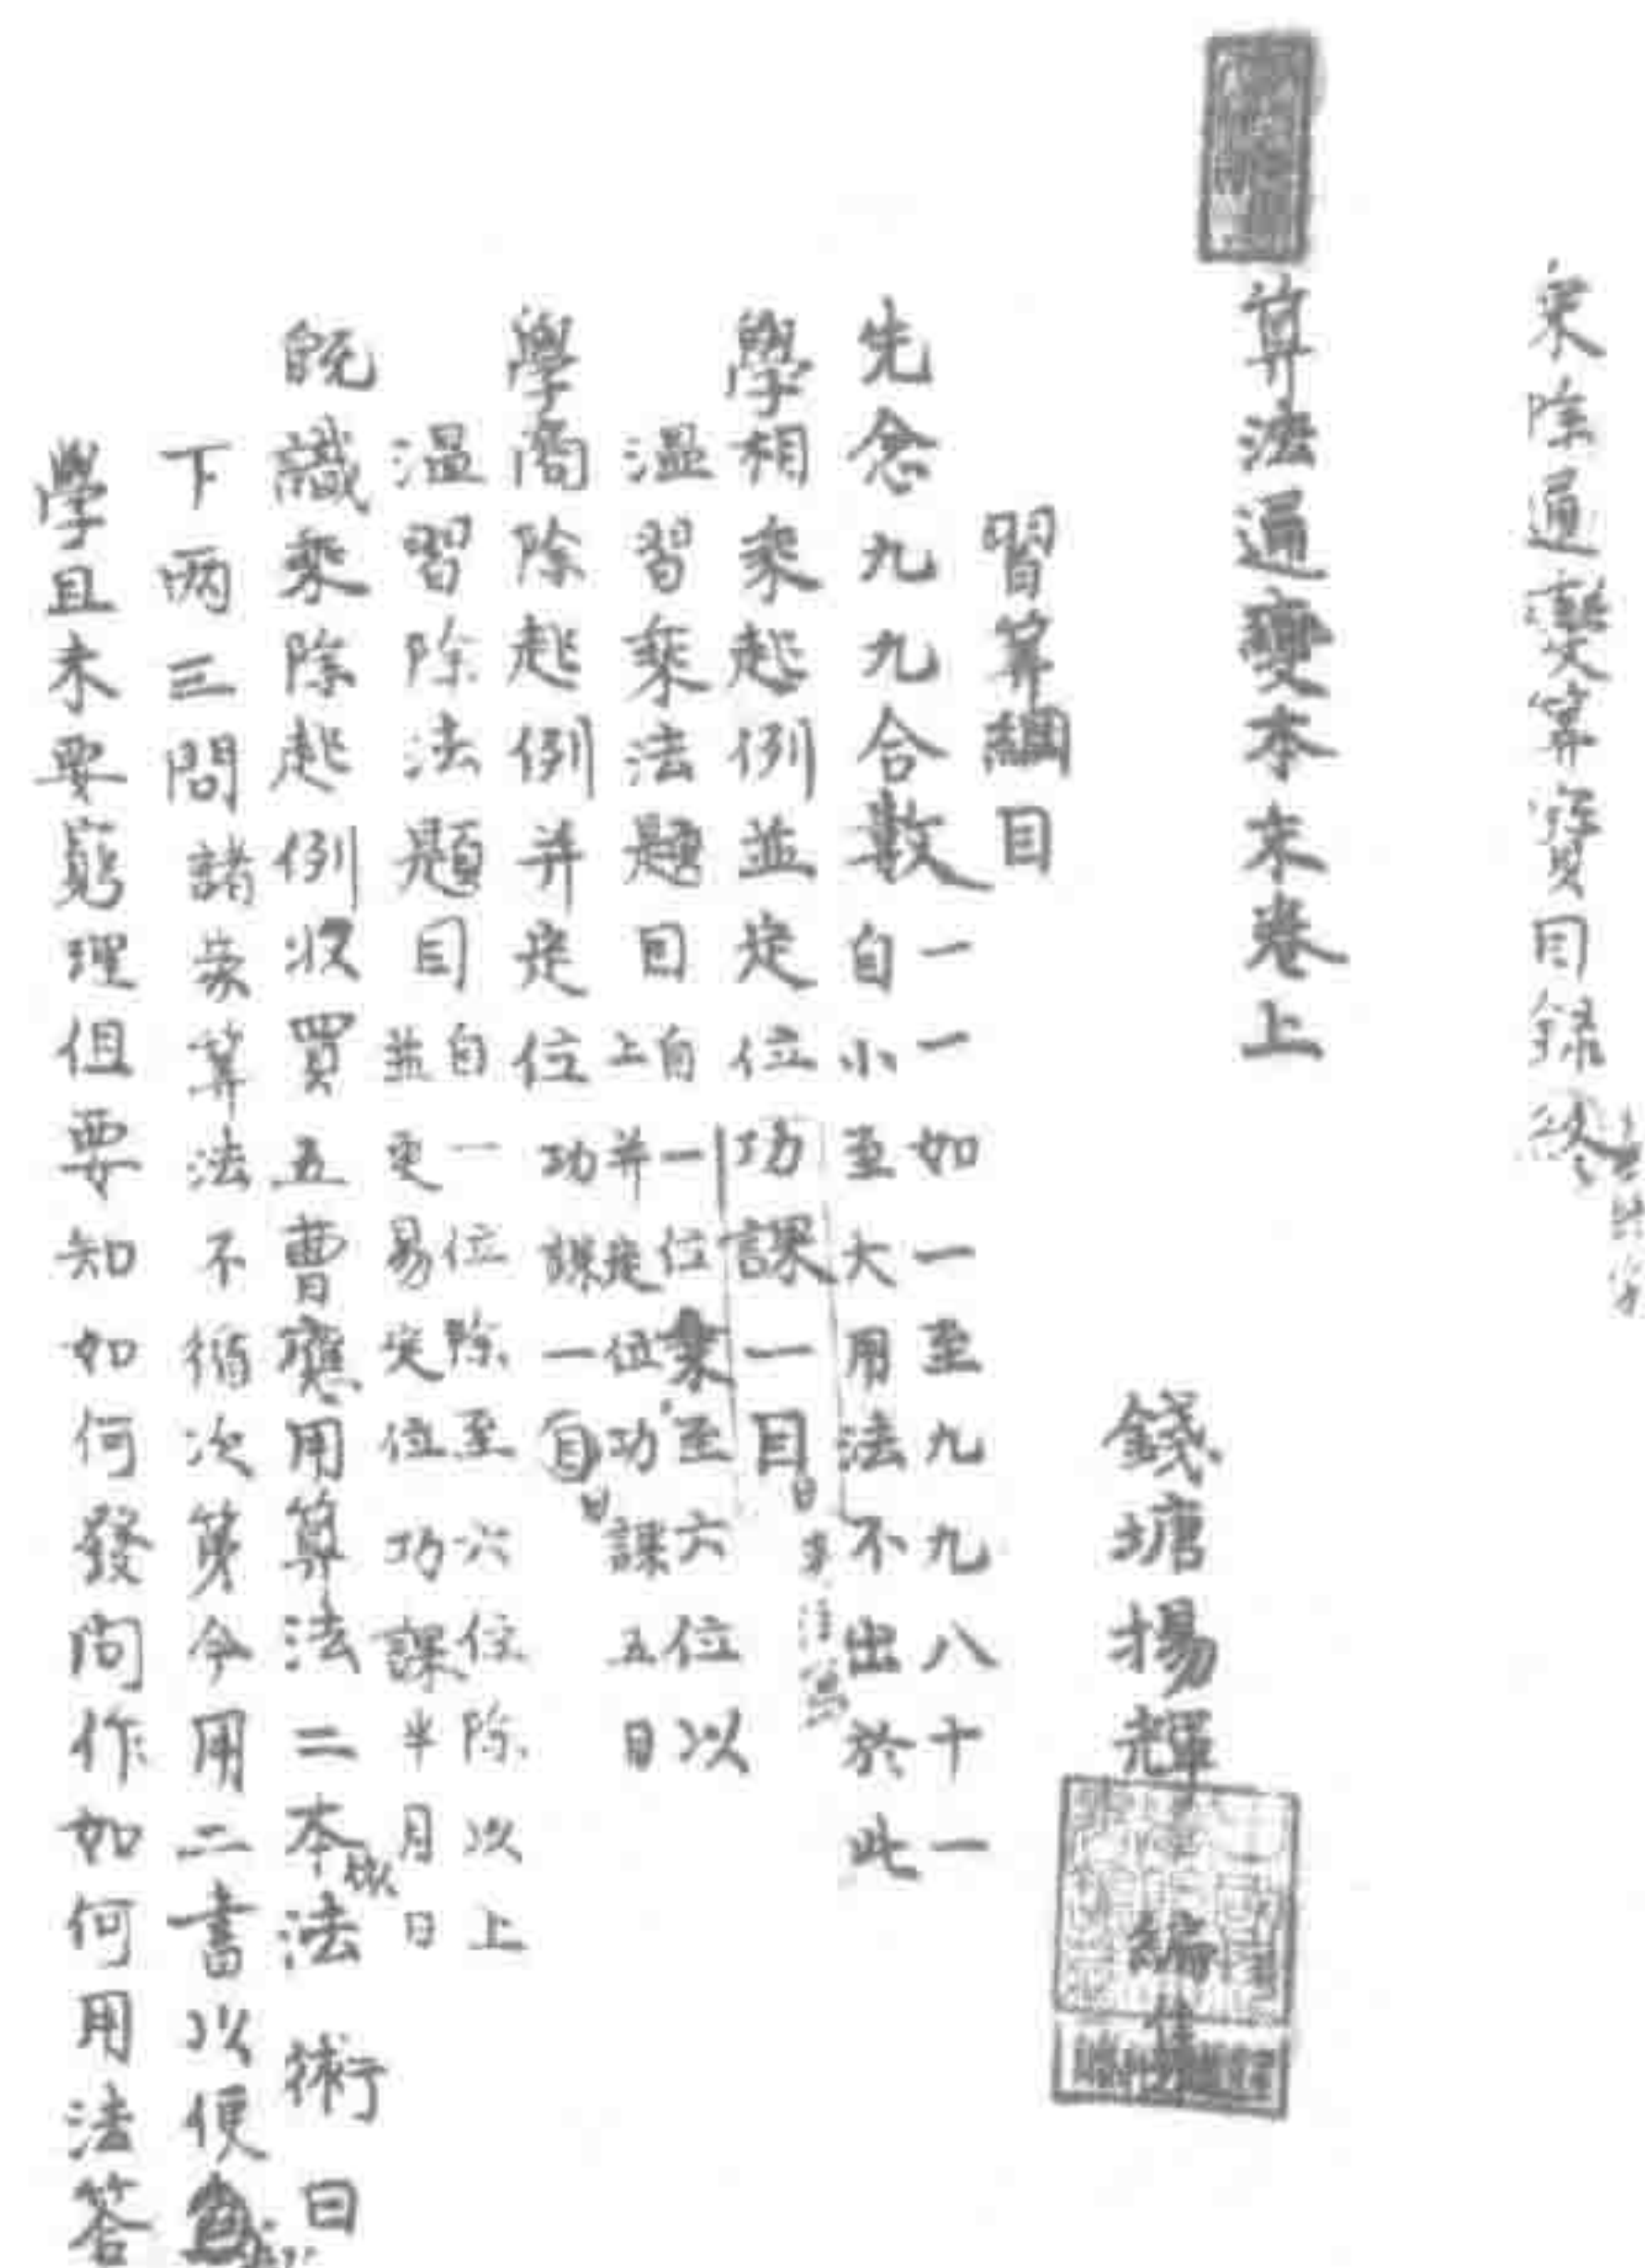 乘除通變算寶目録終
算法通變本末卷上
錢塘揚輝編集
習算綱目
先念九九合數
一一如一至九九八十一
自小至大用法不出於此
學相乘起例並定位功課一日
溫習乘法題目
自一位乘至六位以
上并定位功課五日
學商除起例并定位
功課一日
溫習除法題目
自一位除至六位除以上
並更易定位功課半月日
既識乘除起例收買五曹應用算法二本依法術日
下兩三問諸家算法不循次第今用二書以便
學且未要窮理但要知如何發問作如何用法答